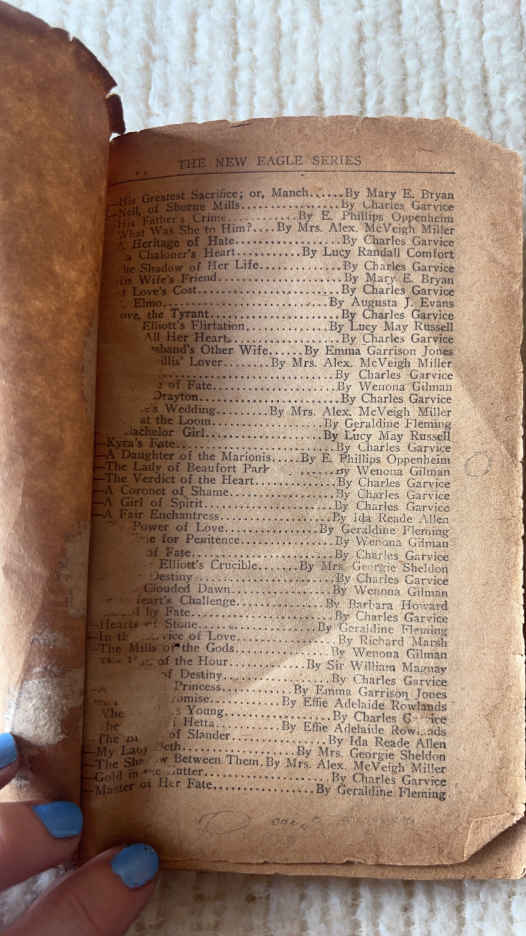 THE NEW EAGLE SERIES
His Greatest Sacrifice; or, Manch......By Mary E. Bryan
—Nell, of Shorne Mills..................By Charles Garvice
His Father's Crime............By E. Phillips Oppenheim
What Was She to Him?....By Mrs. Alex. McVeigh Miller
Heritage of Hate.....................By Charles Garvice
Chaloner's Heart...........By Lucy Randall Comfort
the Shadow of Her Life................By Charles Garvice
Wife's Friend......................By Mary E. Bryan
Love's Cost..........................By Charles Garvice
Elmo..............................By Augusta J. Evans
the Tyrant......................By Charles Garvice
Elliott's Flirtation...............By Lucy May Russell
All Her Heart.......................By Charles Garvice
Husband's Other Wife......By Emma Garrison Jones
Lover........By Mrs. Alex. McVeigh Miller
By Charles Garvice
of Fate.......................By Wenona Gilman
Drayton.........................By Charles Garvice
Wedding.........By Mrs. Alex. McVeigh Miller
at the Loom..................By Geraldine Fleming
Bachelor Girl...................By Lucy May Russell
—Kyra's Fate.........................By Charles Garvice
—A Daughter of the Marionis.....By E. Phillips Oppenheim
—The Lady of Beaufort Park By Wenona Gilman
—The Verdict of the Heart.............By Charles Garvice
—A Coronet of Shame.................By Charles Garvice
—A Girl of Spirit......................By Charles Garvice
—A Fair Enchantress..................By Ida Reade Allen
Power of Love................By Geraldine Fleming
for Penitence.................By Wenona Gilman
of Fate........................By Charles Garvice
Elliott's Crucible.......By Mrs. Georgie Sheldon
Destiny.........................By Charles Garvice
Clouded Dawn....................By Wenona Gilman
Heart's Challenge................By Barbara Howard
by Fate.......................By Charles Garvice
—Hearts of Stone...................By Geraldine Fleming
—In the Service of Love................By Richard Marsh
—The Mills of the Gods................By Wenona Gilman
of the Hour..............By Sir William Magnay
of Destiny...................By Charles Garvice
Princess............By Emma Garrison Jones
Promise............By Effie Adelaide Rowlands
Young....................By Charles Garvice
Hetta...........By Effie Adelaide Rowlands
of Slander.................By Ida Reade Allen
—My Lady Beth..................By Mrs. Georgie Sheldon
—The Shadow Between Them.By Mrs. Alex. McVeigh Miller
—Gold in the Gutter...................By Charles Garvice
—Master of Her Fate................By Geraldine Fleming